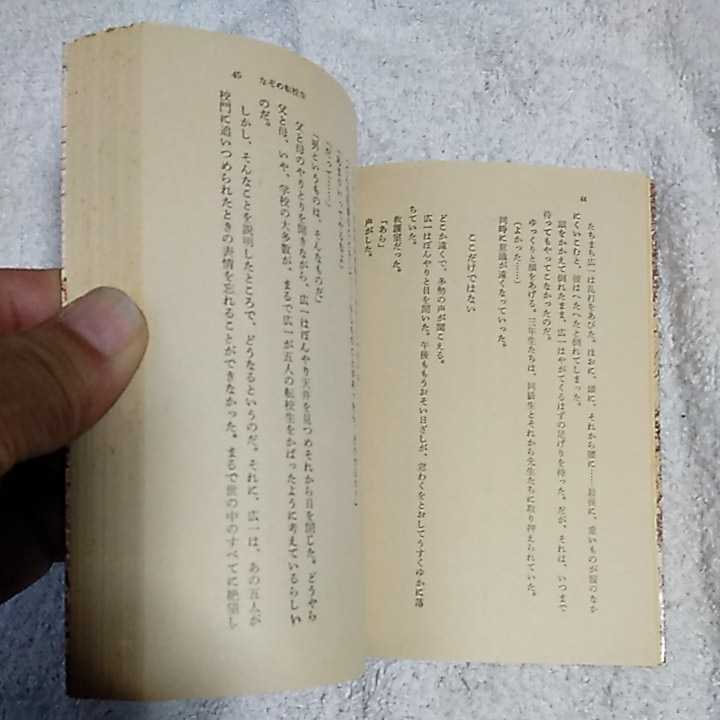 44
たちまち広一は乱打をあびた。ほおに、頭に、それから腰に……最後に、重いものが腹のなか
にくいこむと、彼はへたへたと倒れてしまった。
頭をかかえて倒れたまま、広一はやがてくるはずの足げりを待った。だが、それは、いつまで
待ってもやってこなかったのだ。
ゆっくりと顔をあげる。三年生たちは、同級生とそれから先生たちに取り押えられていた。
（よかった……）
同時に意識が遠くなっていった。
ここだけではない
どこか遠くで、多勢の声が聞こえる。
広一はぼんやりと目を開いた。午後ももうおそい日ざしが、窓わくをとおしてうすくゆかに落
ちていた。
救護室だった。
「あら」
声がした。
45 なぞの転校生
「だって……」
「男というものは、そんなものだ」
父と母のやりとりを聞きながら、広一はぼんやり天井を見つめそれから目を閉じた。どうやら
父と母、いや、学校の大多数が、まるで広一が五人の転校生をかばったように考えているらしい
のだ。
しかし、そんなことを説明したところで、どうなるというのだ。それに、広一は、あの五人が
校門に追いつめられたときの表情を忘れることができなかった。まるで世の中のすべてに絶望し